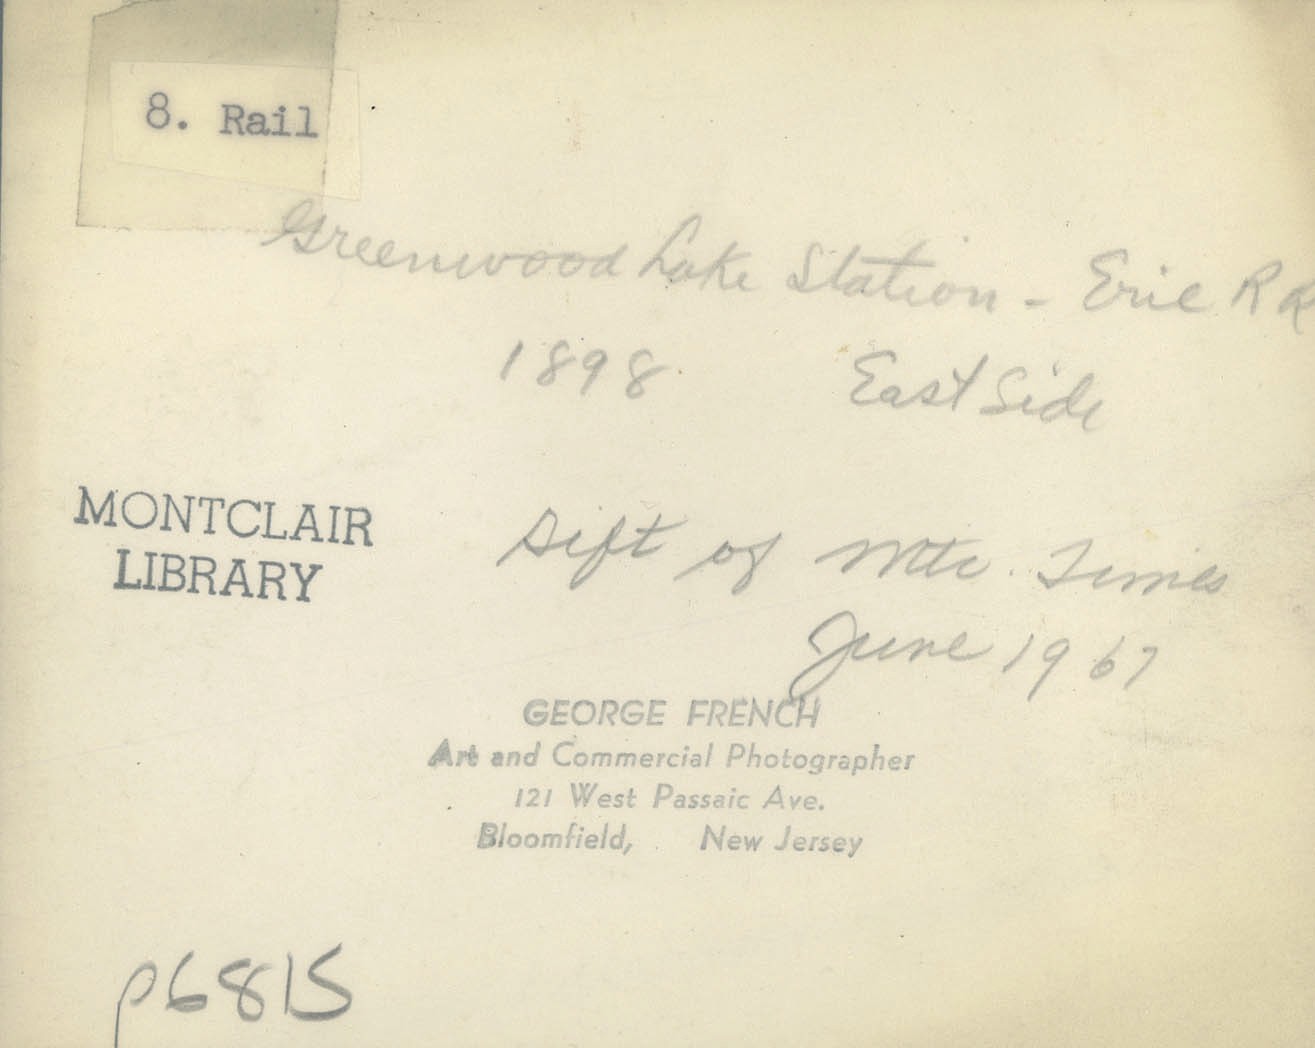 8. Rail
Greenwood Lake Station - Erie RR
1898 East Side
MONTCLAIR
LIBRARY
Gift of Mtc. Times
June 1967
GEORGE FRENCH
Art and Commercial Photographer
121 West Passaic Ave.
Bloomfield, New Jersey
p6815